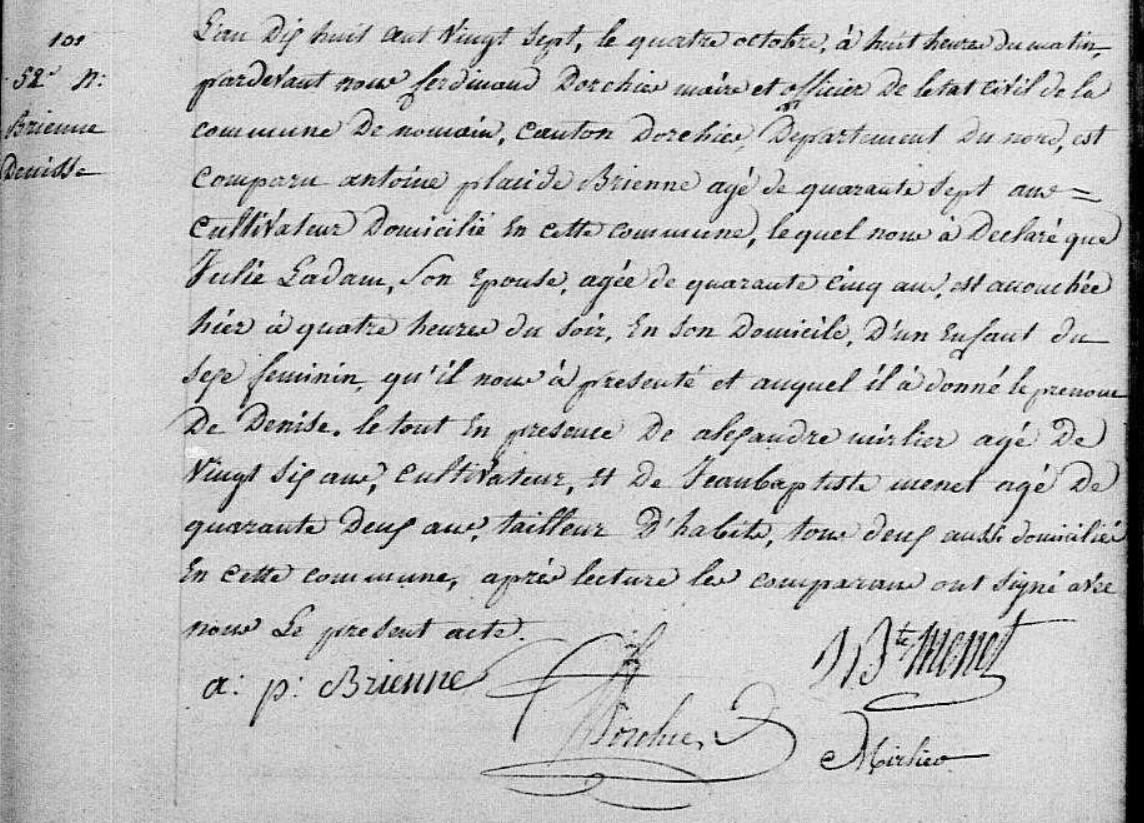 101
52e N:
Brienne
Denise
L'an Dix huit cent Vingt Sept, le quatre octobre, à huit heures du matin,
pardevant nous ferdinand Dorchies maire et officier De letat civil de la
commune De nomain, Canton Dorchies, Departement Du nord, est
Comparu antoine placide Brienne agé de quarante Sept ans =
Cultivateur Domicilié En cette commune, lequel nous à Declaré que
Julie Ladam, Son Epouse, agée de quarante Cinq ans, est accouchée
hier à quatre heures du Soir, En Son Domicile, D'un Enfant du
Sexe feminin, qu'il nous à presenté et auquel il à donné le prenom
De Denise. le tout En presence De alexandre mirlier agé De
Vingt Six ans, Cultivateur, Et De Jeanbaptiste menet agé De
quarante Deux ans, tailleur D'habits, tous deux aussi domiciliés
En cette commune, après lecture les comparans ont Signé avec
nous Le present acte.
a: p: Brienne
Dorchies
J Bte Menet
Mirlier